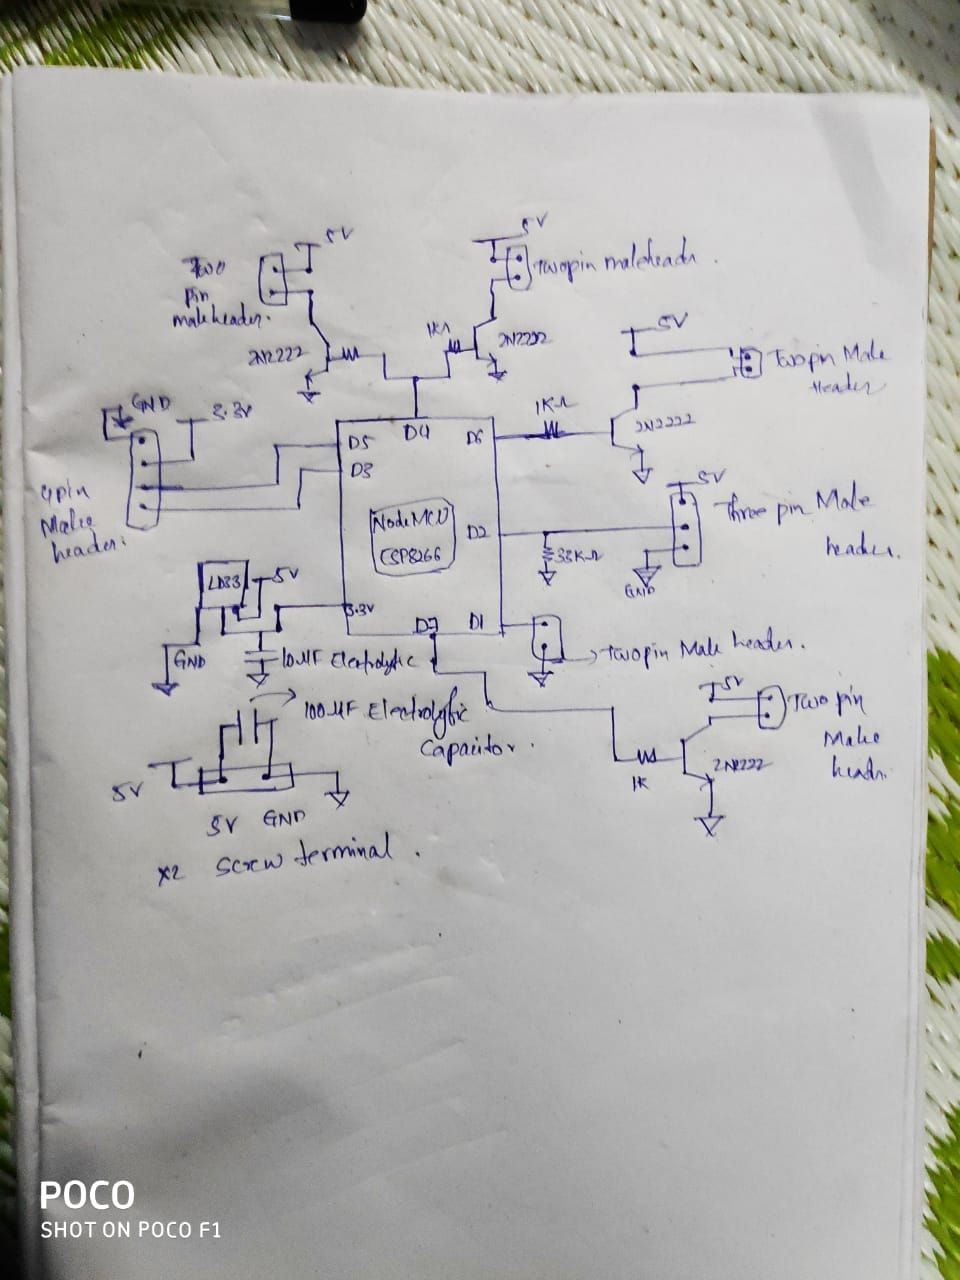 5V
5V
Two
pin
maleheader.
Two pin maleheadr.
1KΩ
2N2222
2N2222
5V
Two pin Male
Header
GND
3.3V
1KΩ
2N2222
D5
D4
D6
D3
4pin
Male
header.
NodeMCU
ESP8266
D2
33KΩ
5V
Three pin Male
header.
GND
LD33
5V
3.3V
D7
D1
GND
10µF Electrolytic
Two pin Male header.
100µF Electrolytic
Capacitor.
5V
Two pin
Male
headr.
1K
2N2222
5V
5V GND
x2 Screw terminal.
POCO
SHOT ON POCO F1